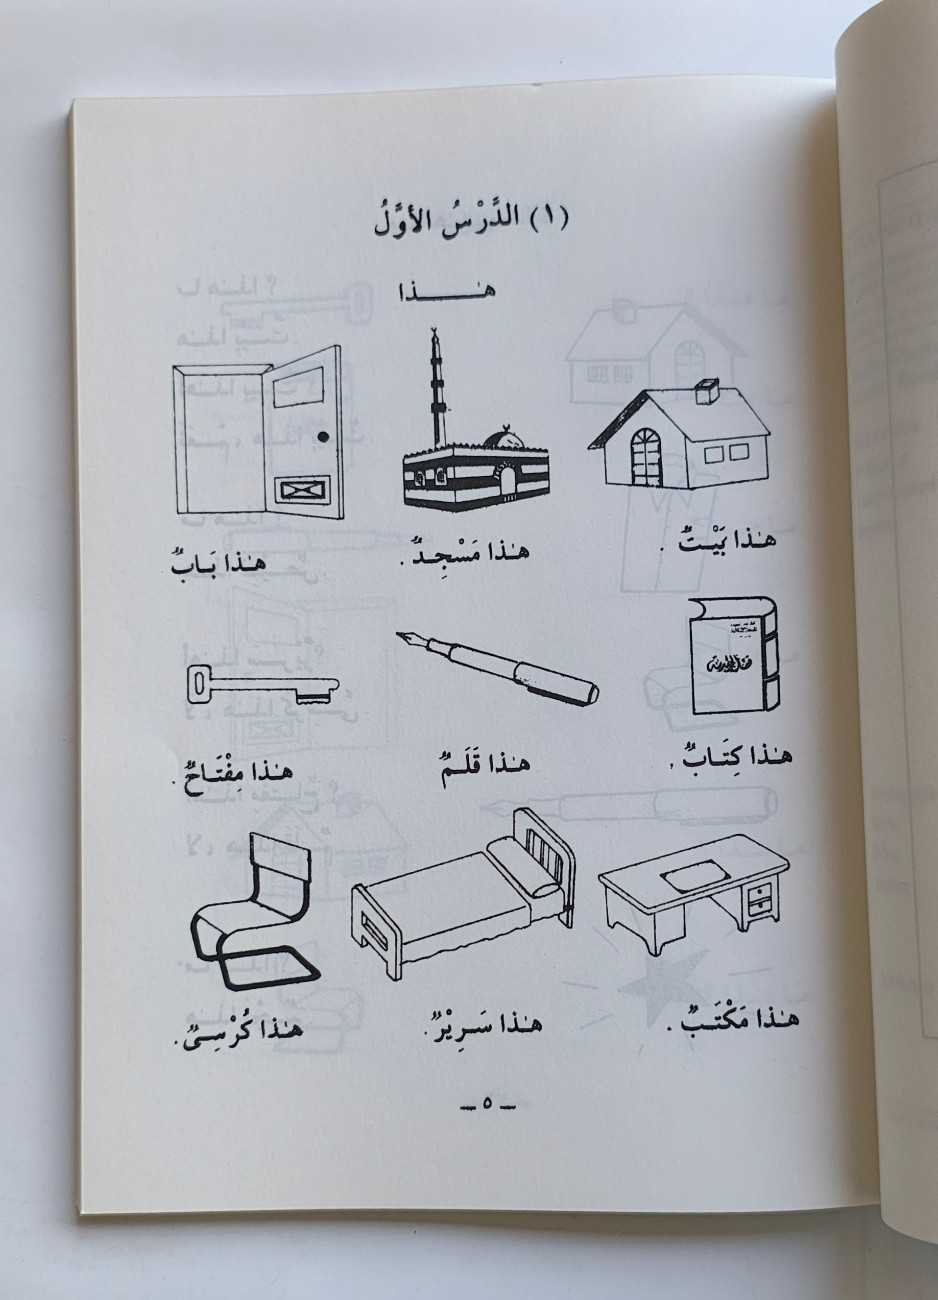 (١) الدَّرْسُ الأوَّلُ
هٰـــذا
هٰذا بَيْتٌ . هٰذا مَسْجِدٌ . هٰذا بَابٌ
هٰذا كِتَابٌ . هٰذا قَلَمٌ هٰذا مِفْتَاحٌ .
هٰذا مَكْتَبٌ . هٰذا سَرِيْرٌ . هٰذا كُرْسِىٌّ .
ــ ٥ ــ